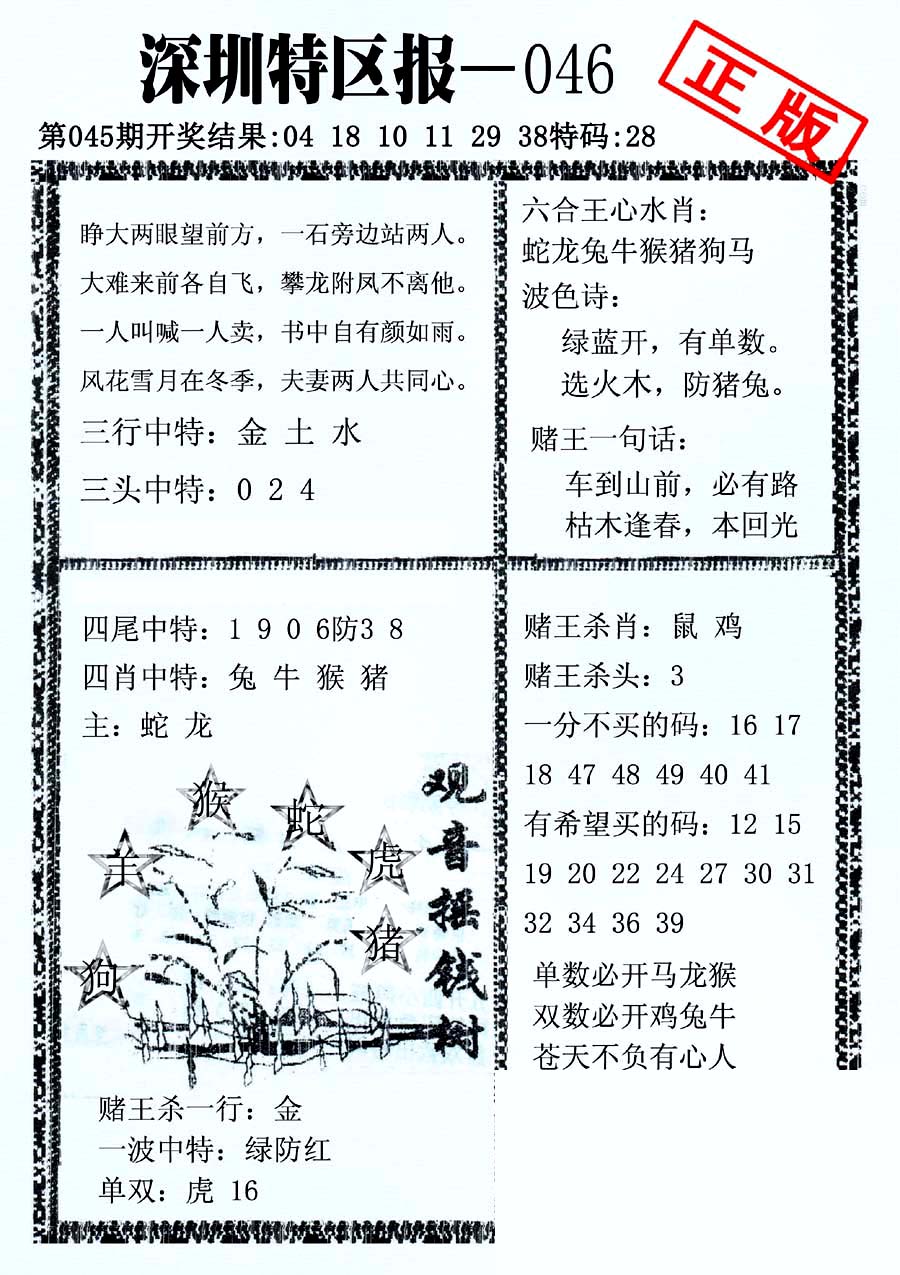 深圳特区报—046
正版
第045期开奖结果:04 18 10 11 29 38特码:28
睁大两眼望前方，一石旁边站两人。
大难来前各自飞，攀龙附凤不离他。
一人叫喊一人卖，书中自有颜如雨。
风花雪月在冬季，夫妻两人共同心。
三行中特：金 土 水
三头中特：0 2 4
六合王心水肖：
蛇龙兔牛猴猪狗马
波色诗：
绿蓝开，有单数。
选火木，防猪兔。
赌王一句话：
车到山前，必有路
枯木逢春，本回光
四尾中特：1 9 0 6防3 8
四肖中特：兔 牛 猴 猪
主：蛇 龙
猴
蛇
羊
虎
猪
狗
观音摇钱树
赌王杀一行：金
一波中特：绿防红
单双：虎 16
赌王杀肖：鼠 鸡
赌王杀头：3
一分不买的码：16 17
18 47 48 49 40 41
有希望买的码：12 15
19 20 22 24 27 30 31
32 34 36 39
单数必开马龙猴
双数必开鸡兔牛
苍天不负有心人